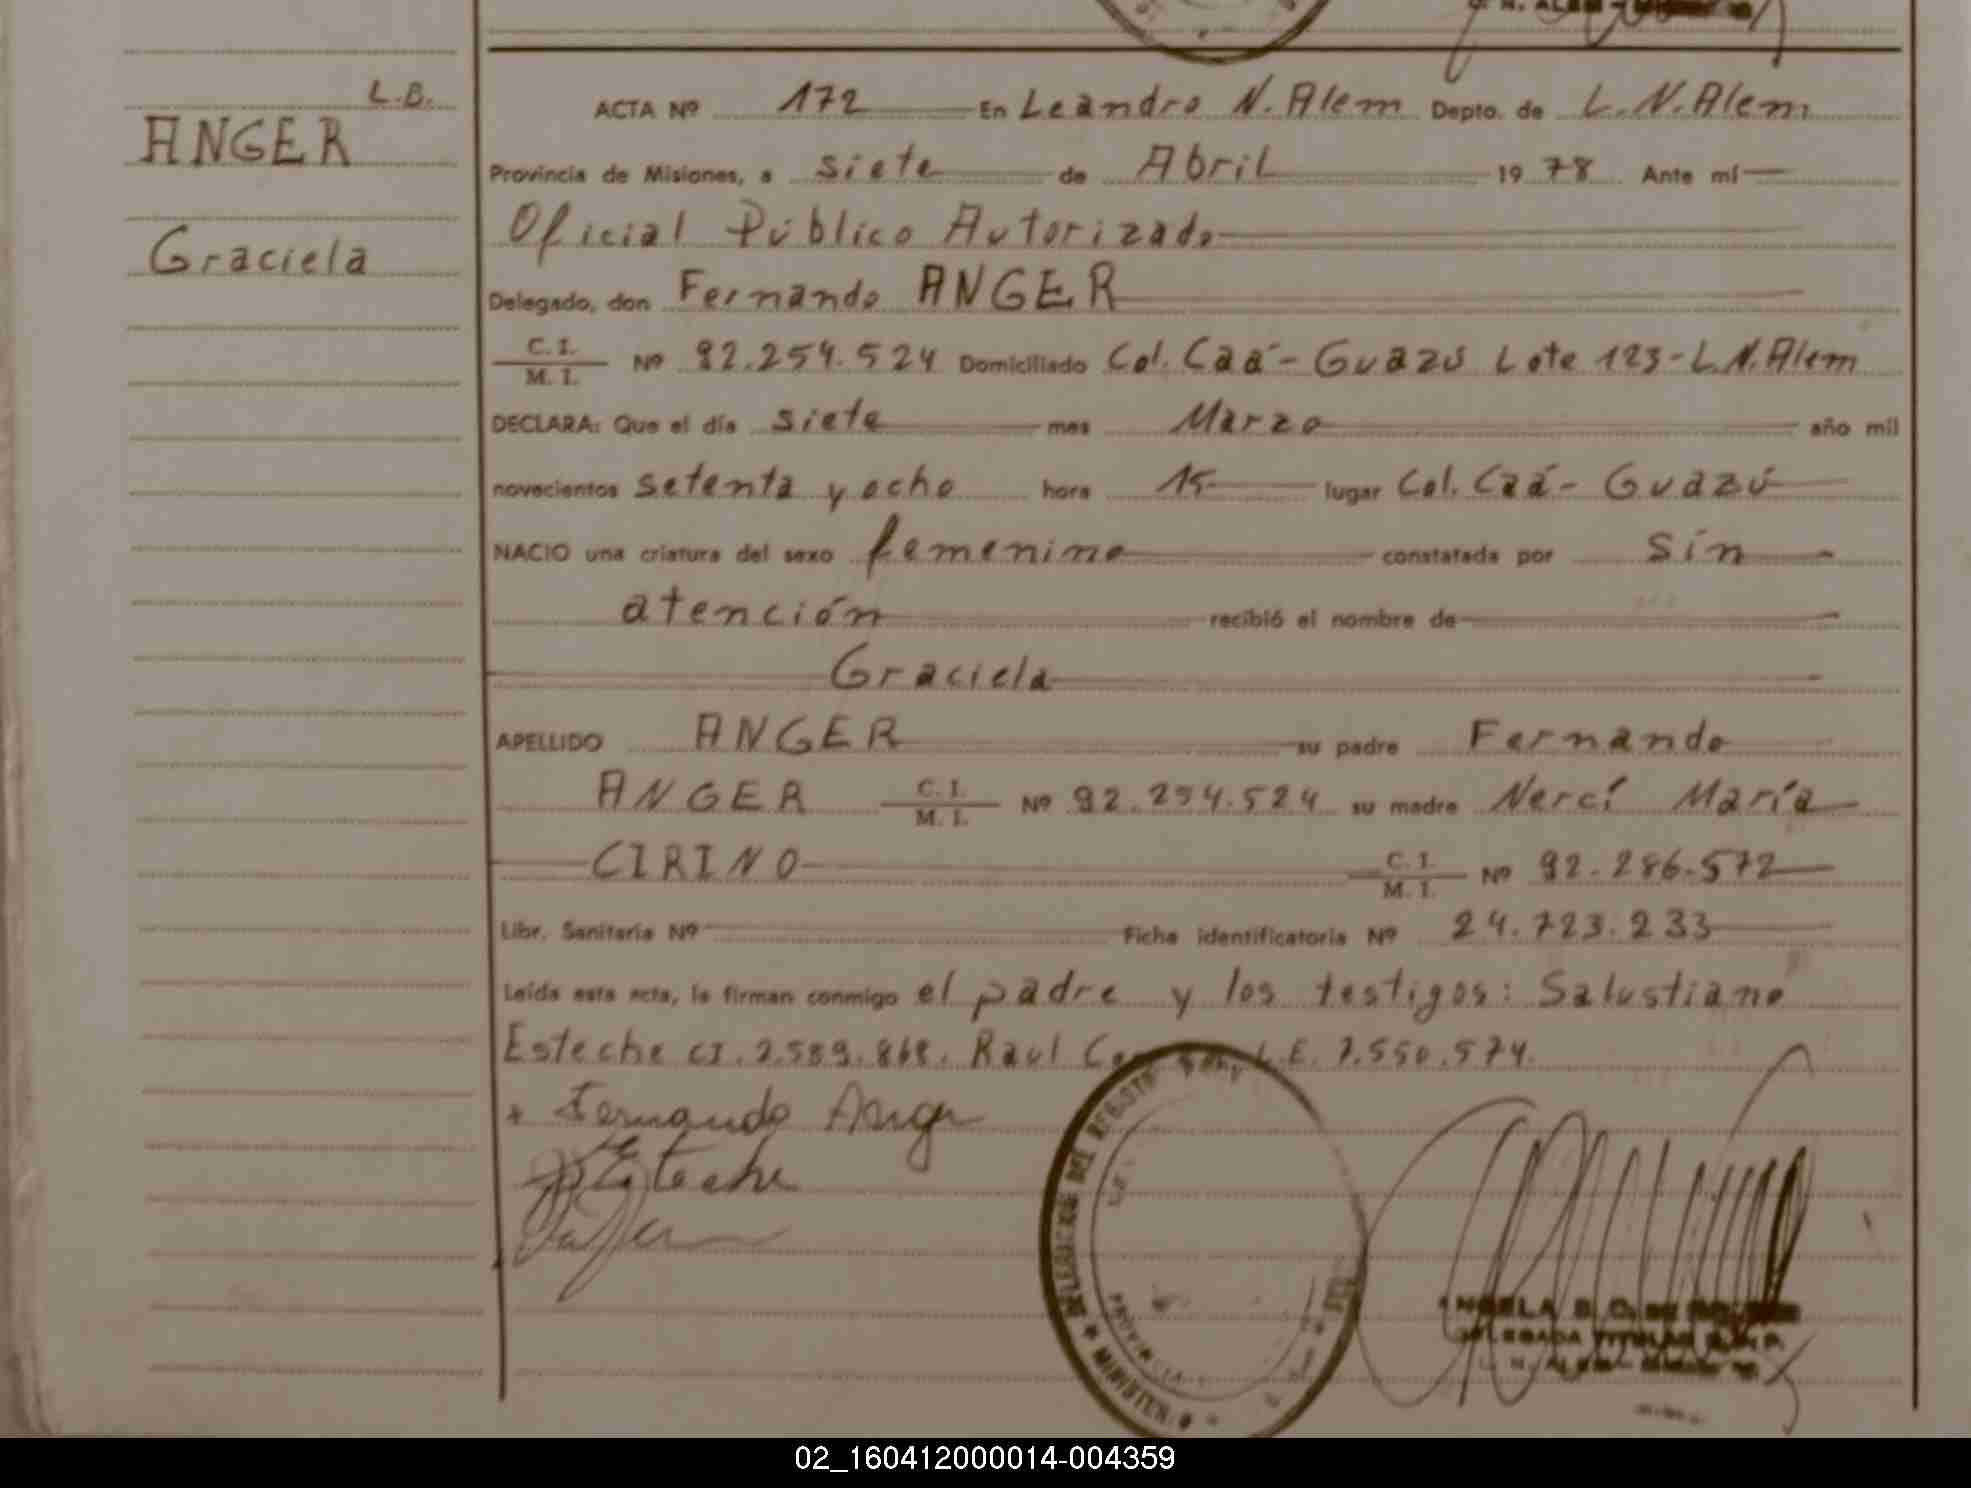 L.B.
ANGER
Graciela
ACTA Nº 172 En Leandro N. Alem Depto. de L. N. Alem
Provincia de Misiones, a siete de Abril 19 78 Ante mí
Oficial Público Autorizado
Delegado, don Fernando ANGER
C. I.
M. I. Nº 92.254.524 Domiciliado Col. Caá-Guazú Lote 123-L.N. Alem
DECLARA: Que el día siete mes Marzo año mil
novecientos setenta y ocho hora 15 lugar Col. Caá-Guazú
NACIO una criatura del sexo femenino constatada por sin
atención recibió el nombre de
Graciela
APELLIDO ANGER su padre Fernando
ANGER C. I. M. I. Nº 92.254.524 su madre Nercí María
CIRINO C. I. M. I. Nº 92.286.572
Libr. Sanitaria Nº Ficha identificatoria Nº 24.723.233
Leída esta acta, la firman conmigo el padre y los testigos: Salustiano
Esteche CI. 2.589.868. Raul L.E. 7.550.574.
Fernando Anger
Esteche
PROVINCIA
02_160412000014-004359